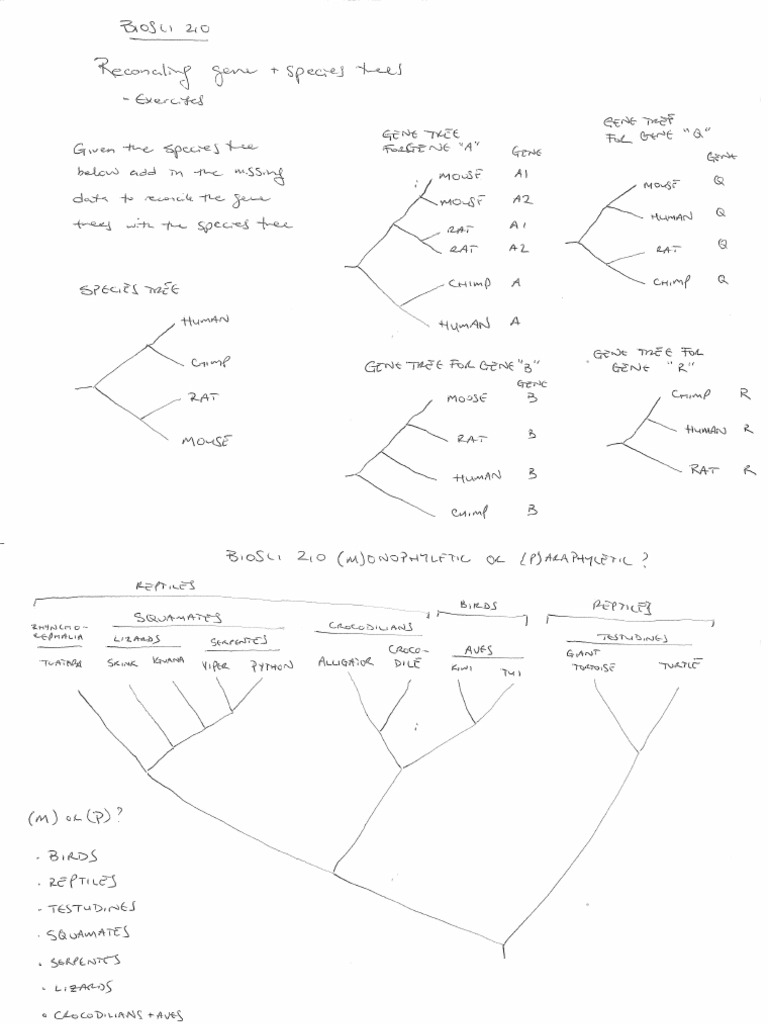 BIOSCI 210
Reconciling gene + species trees
- Exercises
Given the species tree
below add in the missing
data to reconcile the gene
trees with the species tree
SPECIES TREE
HUMAN
CHIMP
RAT
MOUSE
GENE TREE
FOR GENE "A"
GENE
MOUSE A1
MOUSE A2
RAT A1
RAT A2
CHIMP A
HUMAN A
GENE TREE
FOR GENE "Q"
GENE
MOUSE Q
HUMAN Q
RAT Q
CHIMP Q
GENE TREE FOR GENE "B"
GENE
MOUSE B
RAT B
HUMAN B
CHIMP B
GENE TREE FOR
GENE "R"
CHIMP R
HUMAN R
RAT R
BIOSCI 210 (M)ONOPHYLETIC OR (P)ARAPHYLETIC ?
REPTILES
BIRDS
REPTILES
RHYNCHO-
CEPHALIA
SQUAMATES
LIZARDS
SERPENTES
CROCODILIANS
AVES
TESTUDINES
TUATARA
SKINK
IGUANA
VIPER
PYTHON
ALLIGATOR
CROCO-
DILE
KIWI
TUI
GIANT
TORTOISE
TURTLE
(M) OR (P) ?
- BIRDS
- REPTILES
- TESTUDINES
- SQUAMATES
- SERPENTES
- LIZARDS
- CROCODILIANS + AVES